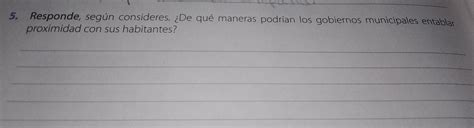 5. Responde, según consideres. ¿De qué maneras podrían los gobiernos municipales entablar
proximidad con sus habitantes?